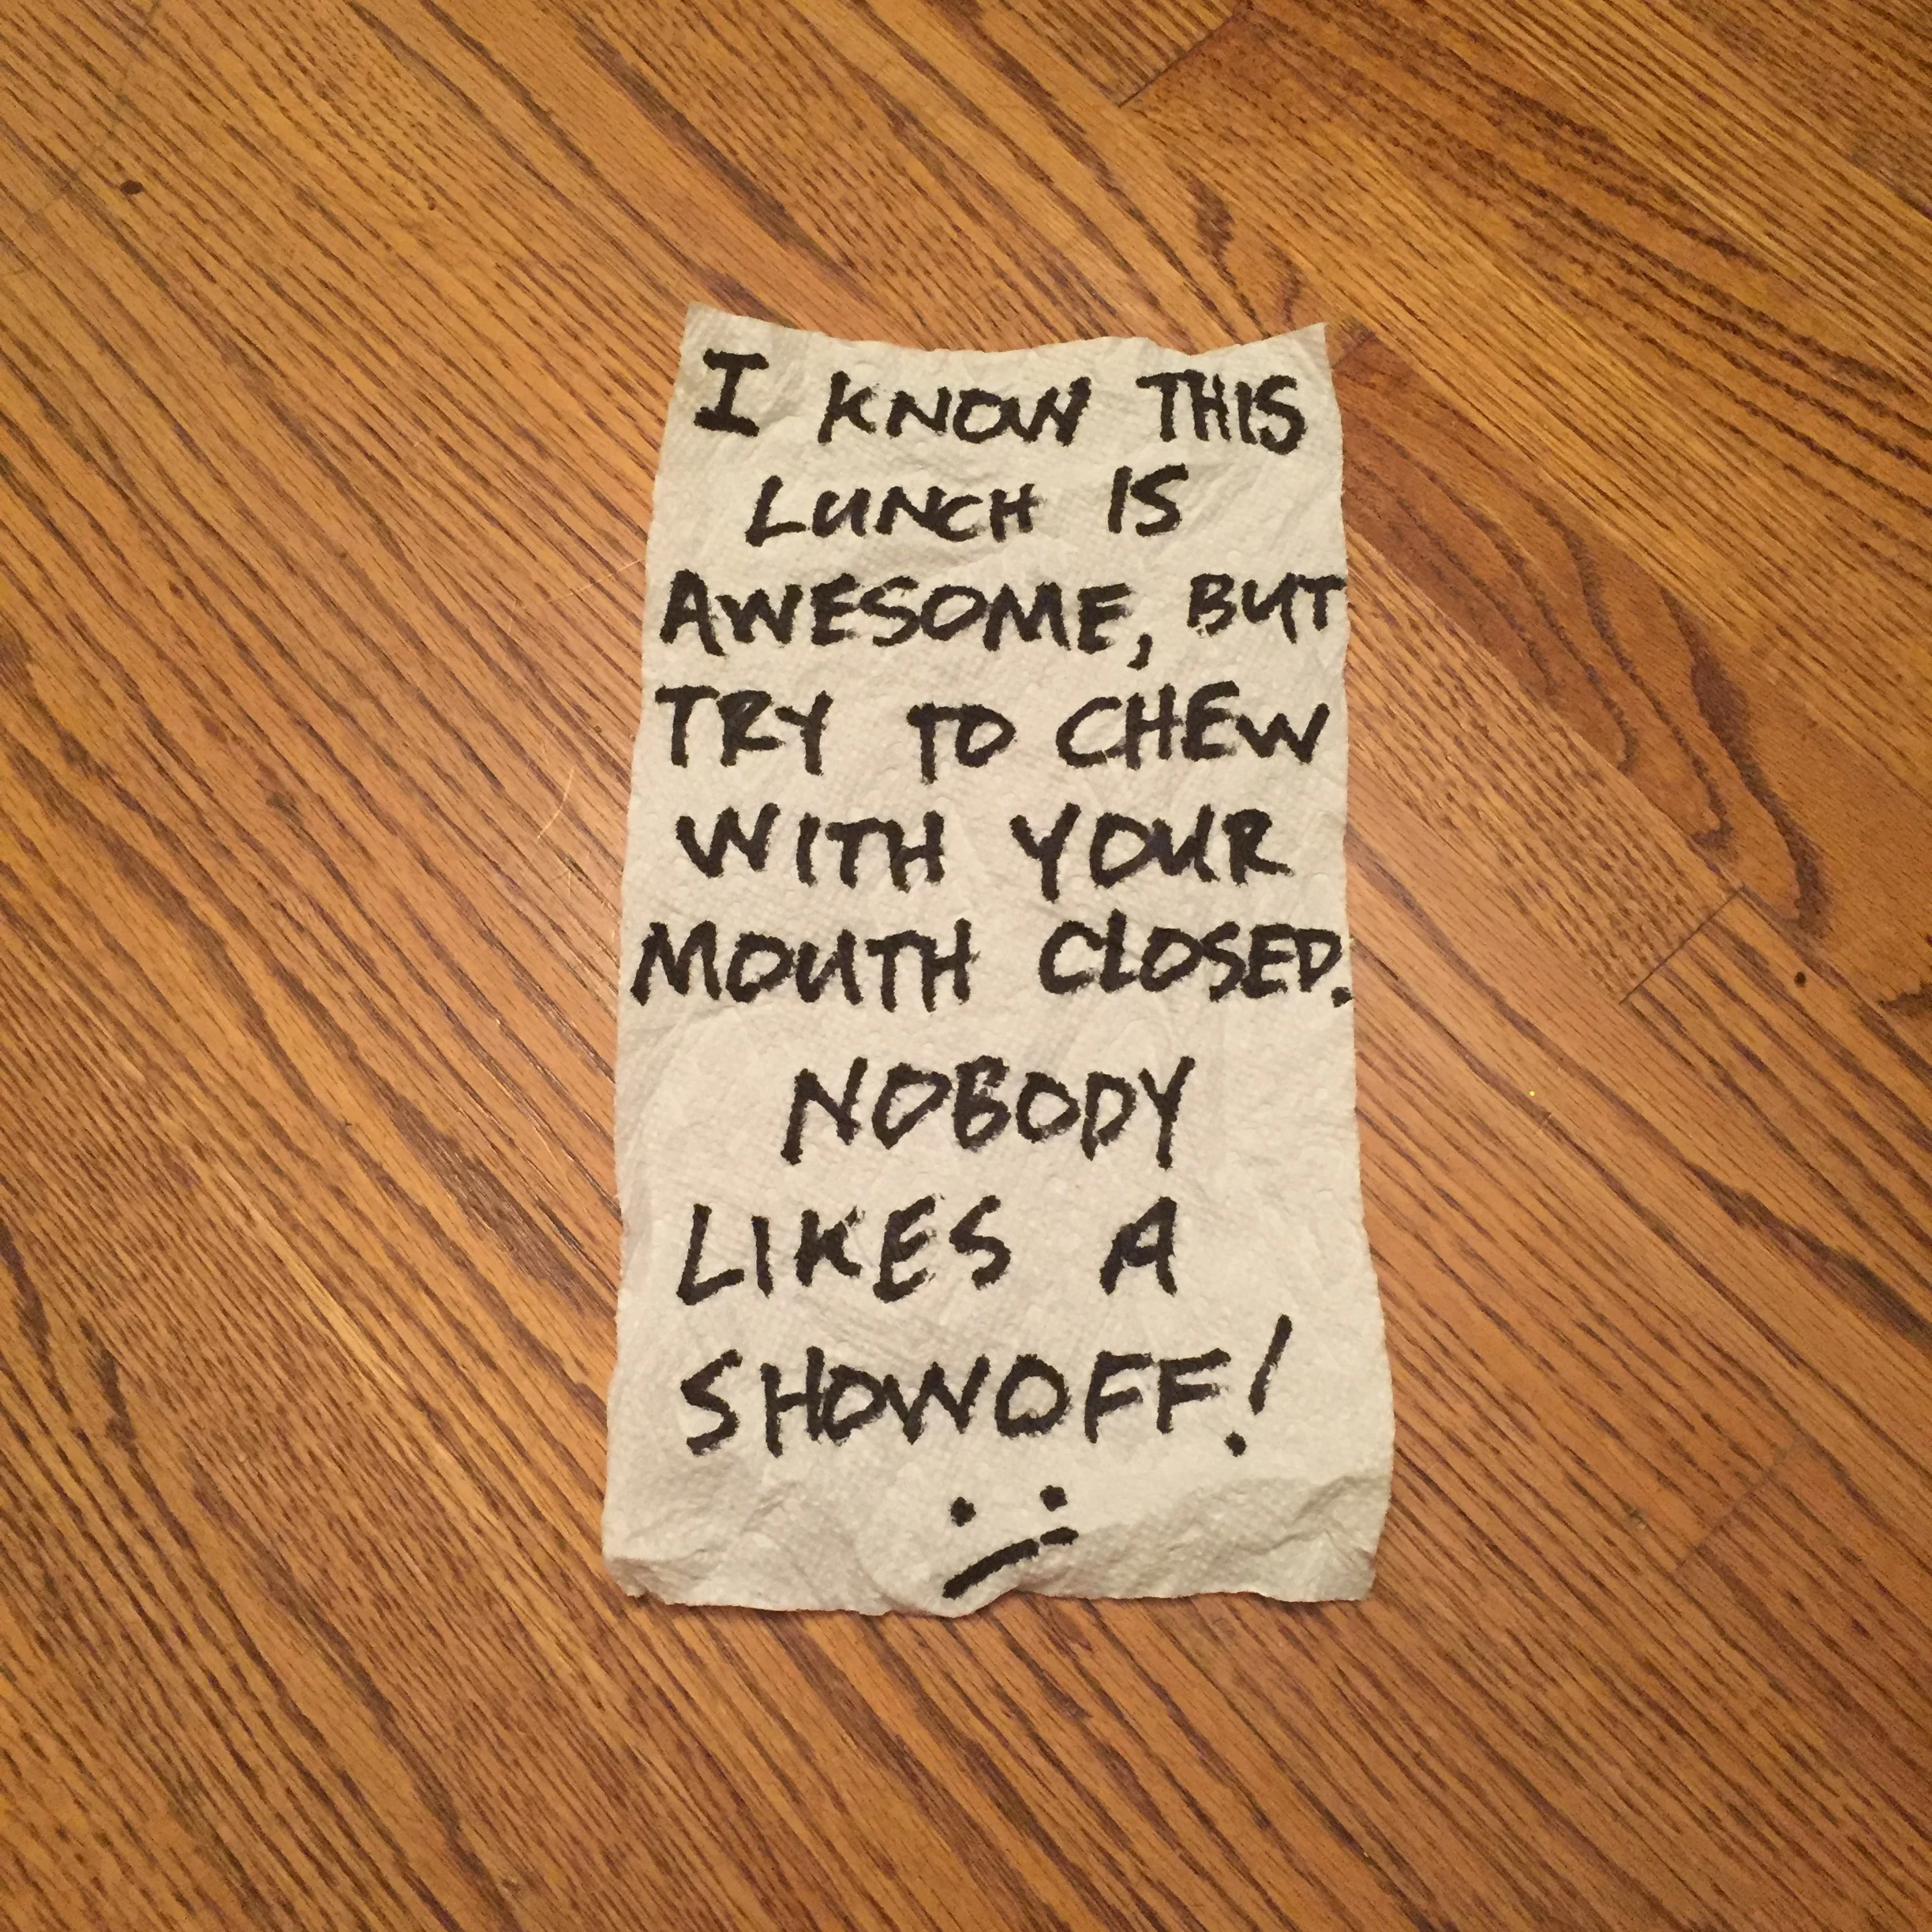 I KNOW THIS
LUNCH IS
AWESOME, BUT
TRY TO CHEW
WITH YOUR
MOUTH CLOSED.
NOBODY
LIKES A
SHOWOFF!